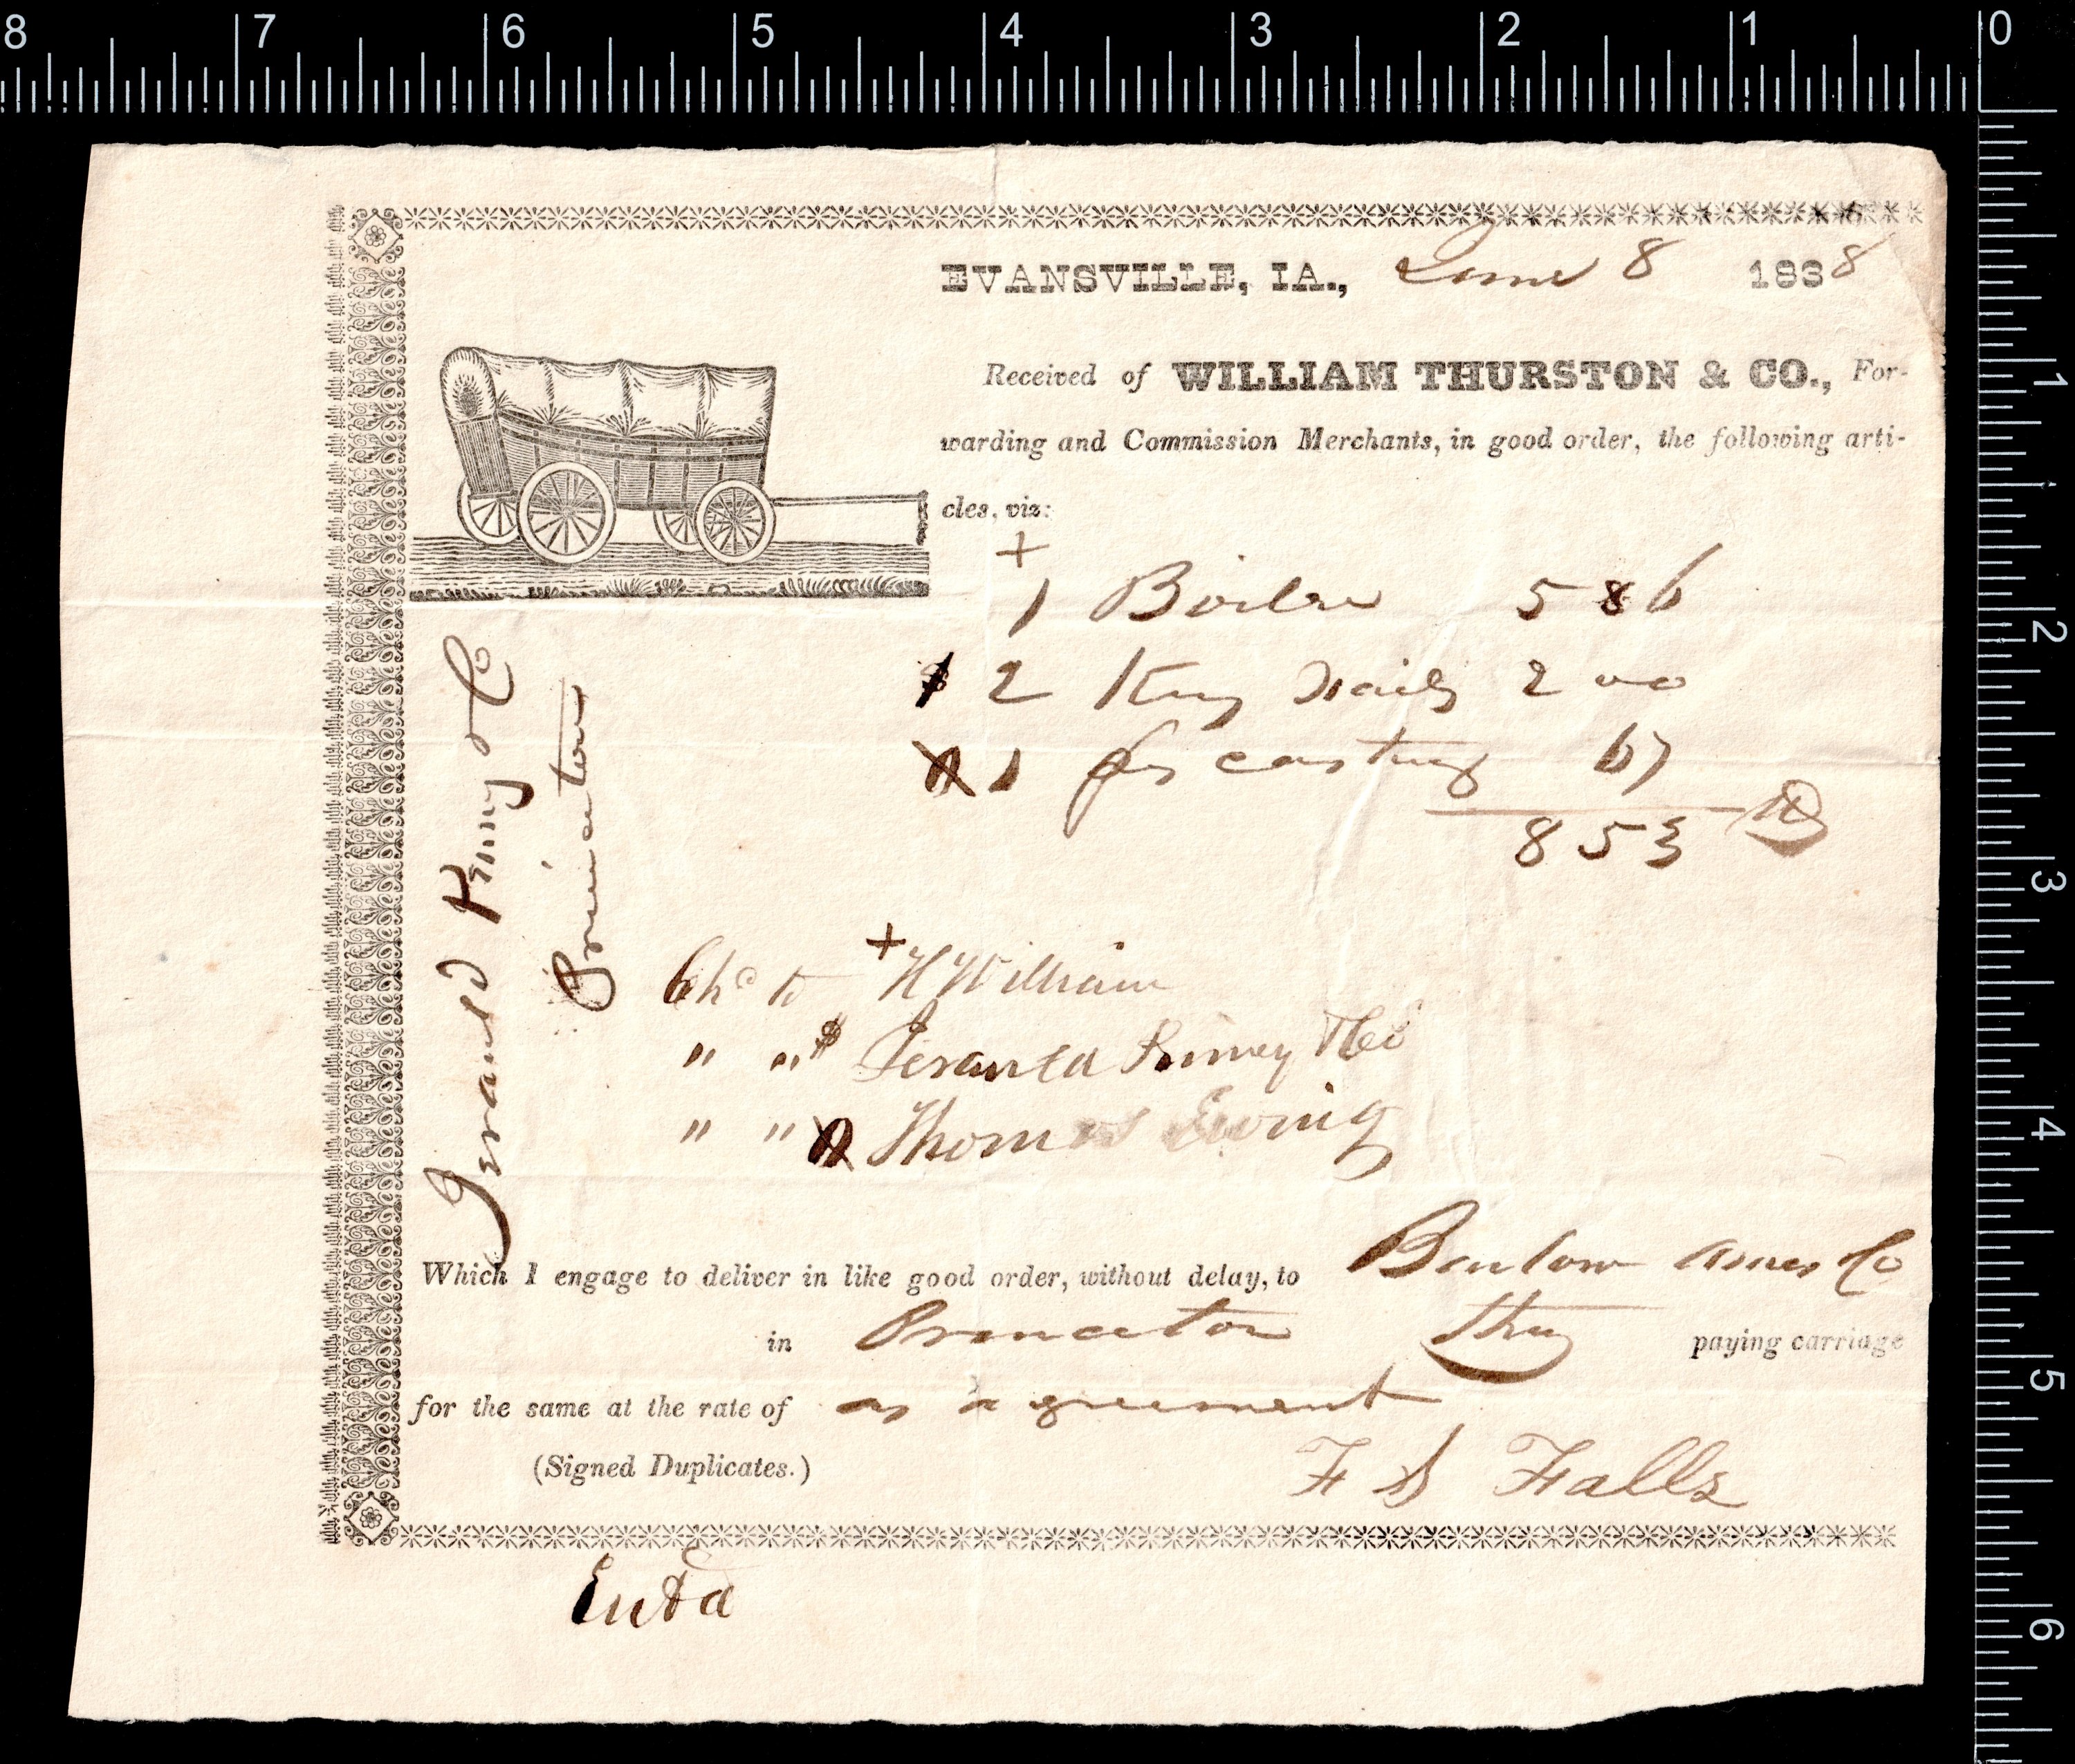 8 7 6 5 4 3 2 1 0
EVANSVILLE, IA., June 8 1838
Received of WILLIAM THURSTON & CO., For-
warding and Commission Merchants, in good order, the following arti-
cles, viz:
+
1 Boiler 586
2 Keg Nails 200
1 casting 67
853
Princeton
Chd to + H William
" " $
" " Thomas Ewing
Which I engage to deliver in like good order, without delay, to Co
in Princeton they paying carriage
for the same at the rate of as agreement
(Signed Duplicates.) F S Falls
Entd
1
2
3
4
5
6